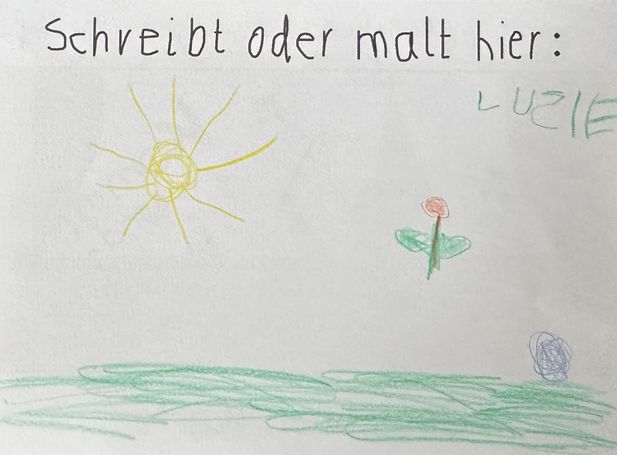 Schreibt oder malt hier:
LUZIE